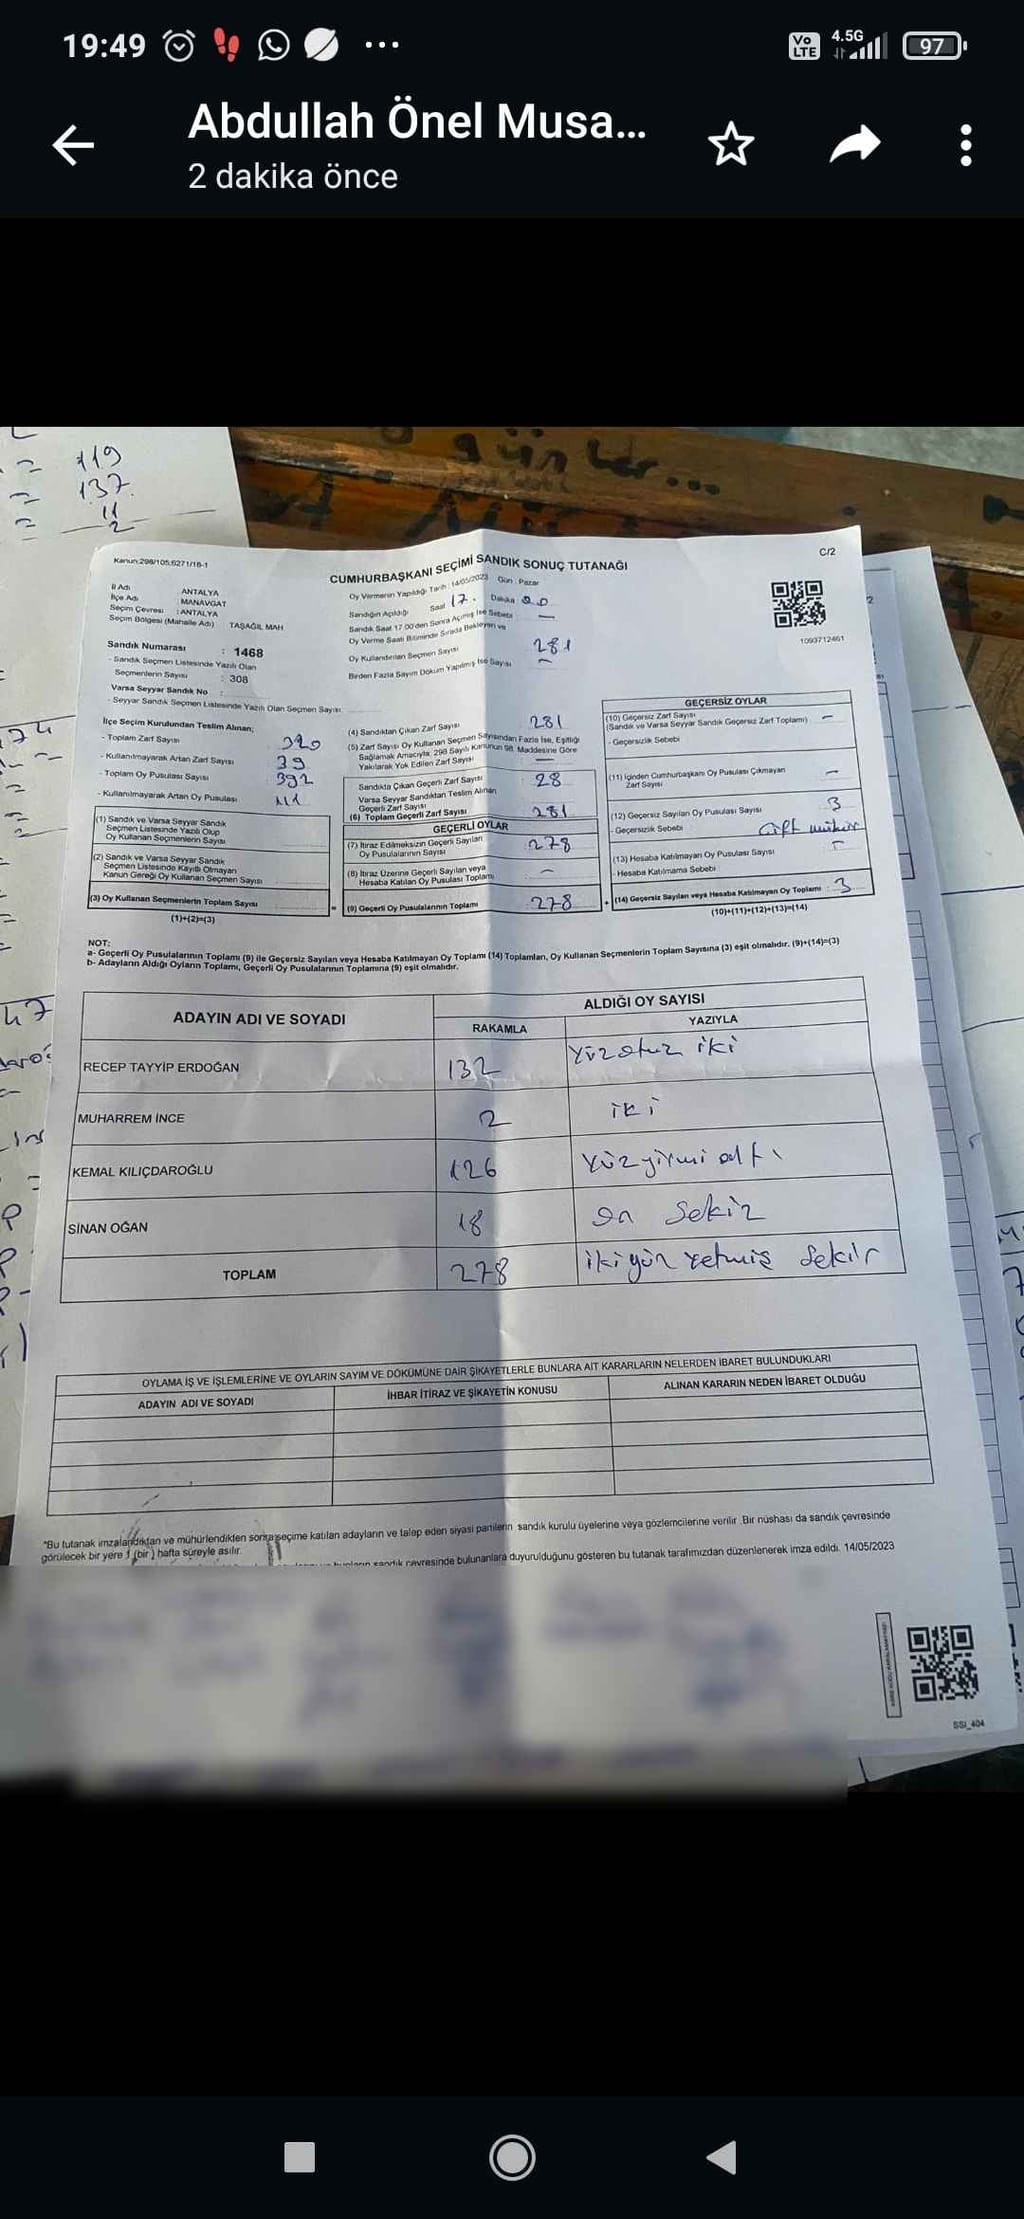 19:49
Vo LTE 4.5G 97
Abdullah Önel Musa...
2 dakika önce
119
137
11
2
günler...
Kanun:298/105;6271/16-1
C/2
CUMHURBAŞKANI SEÇİMİ SANDIK SONUÇ TUTANAĞI
İl Adı ANTALYA
İlçe Adı : MANAVGAT
Seçim Çevresi : ANTALYA
Seçim Bölgesi (Mahalle Adı) TAŞAĞIL MAH
Oy Vermenin Yapıldığı Tarih : 14/05/2023 Gün : Pazar
Sandığın Açıldığı Saat 17. Dakika 00
Sandık Saat 17.00'den Sonra Açılmış İse Sebebi —
Oy Verme Saati Bitiminde Sırada Bekleyen ve
Oy Kullandırılan Seçmen Sayısı 281
Birden Fazla Sayım Döküm Yapılmış İse Sayısı —
1093712461
Sandık Numarası : 1468
- Sandık Seçmen Listesinde Yazılı Olan
Seçmenlerin Sayısı : 308
Varsa Seyyar Sandık No :
- Seyyar Sandık Seçmen Listesinde Yazılı Olan Seçmen Sayısı:
İlçe Seçim Kurulundan Teslim Alınan;
- Toplam Zarf Sayısı 320
- Kullanılmayarak Artan Zarf Sayısı 39
- Toplam Oy Pusulası Sayısı 392
- Kullanılmayarak Artan Oy Pusulası 111
(1) Sandık ve Varsa Seyyar Sandık
Seçmen Listesinde Yazılı Olup
Oy Kullanan Seçmenlerin Sayısı
(2) Sandık ve Varsa Seyyar Sandık
Seçmen Listesinde Kayıtlı Olmayan
Kanun Gereği Oy Kullanan Seçmen Sayısı
(3) Oy Kullanan Seçmenlerin Toplam Sayısı
(1)+(2)=(3)
(4) Sandıktan Çıkan Zarf Sayısı 281
(5) Zarf Sayısı Oy Kullanan Seçmen Sayısından Fazla İse, Eşitliği
Sağlamak Amacıyla; 298 Sayılı Kanunun 98. Maddesine Göre
Yakılarak Yok Edilen Zarf Sayısı —
Sandıkta Çıkan Geçerli Zarf Sayısı 28
Varsa Seyyar Sandıktan Teslim Alınan
Geçerli Zarf Sayısı
(6) Toplam Geçerli Zarf Sayısı 281
GEÇERLİ OYLAR
(7) İtiraz Edilmeksizin Geçerli Sayılan
Oy Pusulalarının Sayısı 278
(8) İtiraz Üzerine Geçerli Sayılan veya
Hesaba Katılan Oy Pusulası Toplamı —
= (9) Geçerli Oy Pusulalarının Toplamı 278
GEÇERSİZ OYLAR
(10) Geçersiz Zarf Sayısı —
(Sandık ve Varsa Seyyar Sandık Geçersiz Zarf Toplamı)
- Geçersizlik Sebebi
(11) İçinden Cumhurbaşkanı Oy Pusulası Çıkmayan
Zarf Sayısı —
(12) Geçersiz Sayılan Oy Pusulası Sayısı 3
- Geçersizlik Sebebi Çift mühür
(13) Hesaba Katılmayan Oy Pusulası Sayısı —
- Hesaba Katılmama Sebebi
+ (14) Geçersiz Sayılan veya Hesaba Katılmayan Oy Toplamı : 3
(10)+(11)+(12)+(13)=(14)
NOT:
a- Geçerli Oy Pusulalarının Toplamı (9) ile Geçersiz Sayılan veya Hesaba Katılmayan Oy Toplamı (14) Toplamları, Oy Kullanan Seçmenlerin Toplam Sayısına (3) eşit olmalıdır. (9)+(14)=(3)
b- Adayların Aldığı Oyların Toplamı, Geçerli Oy Pusulalarının Toplamına (9) eşit olmalıdır.
ADAYIN ADI VE SOYADI
ALDIĞI OY SAYISI
RAKAMLA YAZIYLA
RECEP TAYYİP ERDOĞAN 132 Yüzotuz iki
MUHARREM İNCE 2 iki
KEMAL KILIÇDAROĞLU 126 Yüzyirmi altı
SİNAN OĞAN 18 on sekiz
TOPLAM 278 ikiyüz yetmiş sekiz
OYLAMA İŞ VE İŞLEMLERİNE VE OYLARIN SAYIM VE DÖKÜMÜNE DAİR ŞİKAYETLERLE BUNLARA AİT KARARLARIN NELERDEN İBARET BULUNDUKLARI
ADAYIN ADI VE SOYADI İHBAR İTİRAZ VE ŞİKAYETİN KONUSU ALINAN KARARIN NEDEN İBARET OLDUĞU
*Bu tutanak imzalandıktan ve mühürlendikten sonra seçime katılan adayların ve talep eden siyasi partilerin sandık kurulu üyelerine veya gözlemcilerine verilir. Bir nüshası da sandık çevresinde
görülecek bir yere 1 (bir) hafta süreyle asılır.
sandık çevresinde bulunanlara duyurulduğunu gösteren bu tutanak tarafımızdan düzenlenerek imza edildi. 14/05/2023
SSI_404